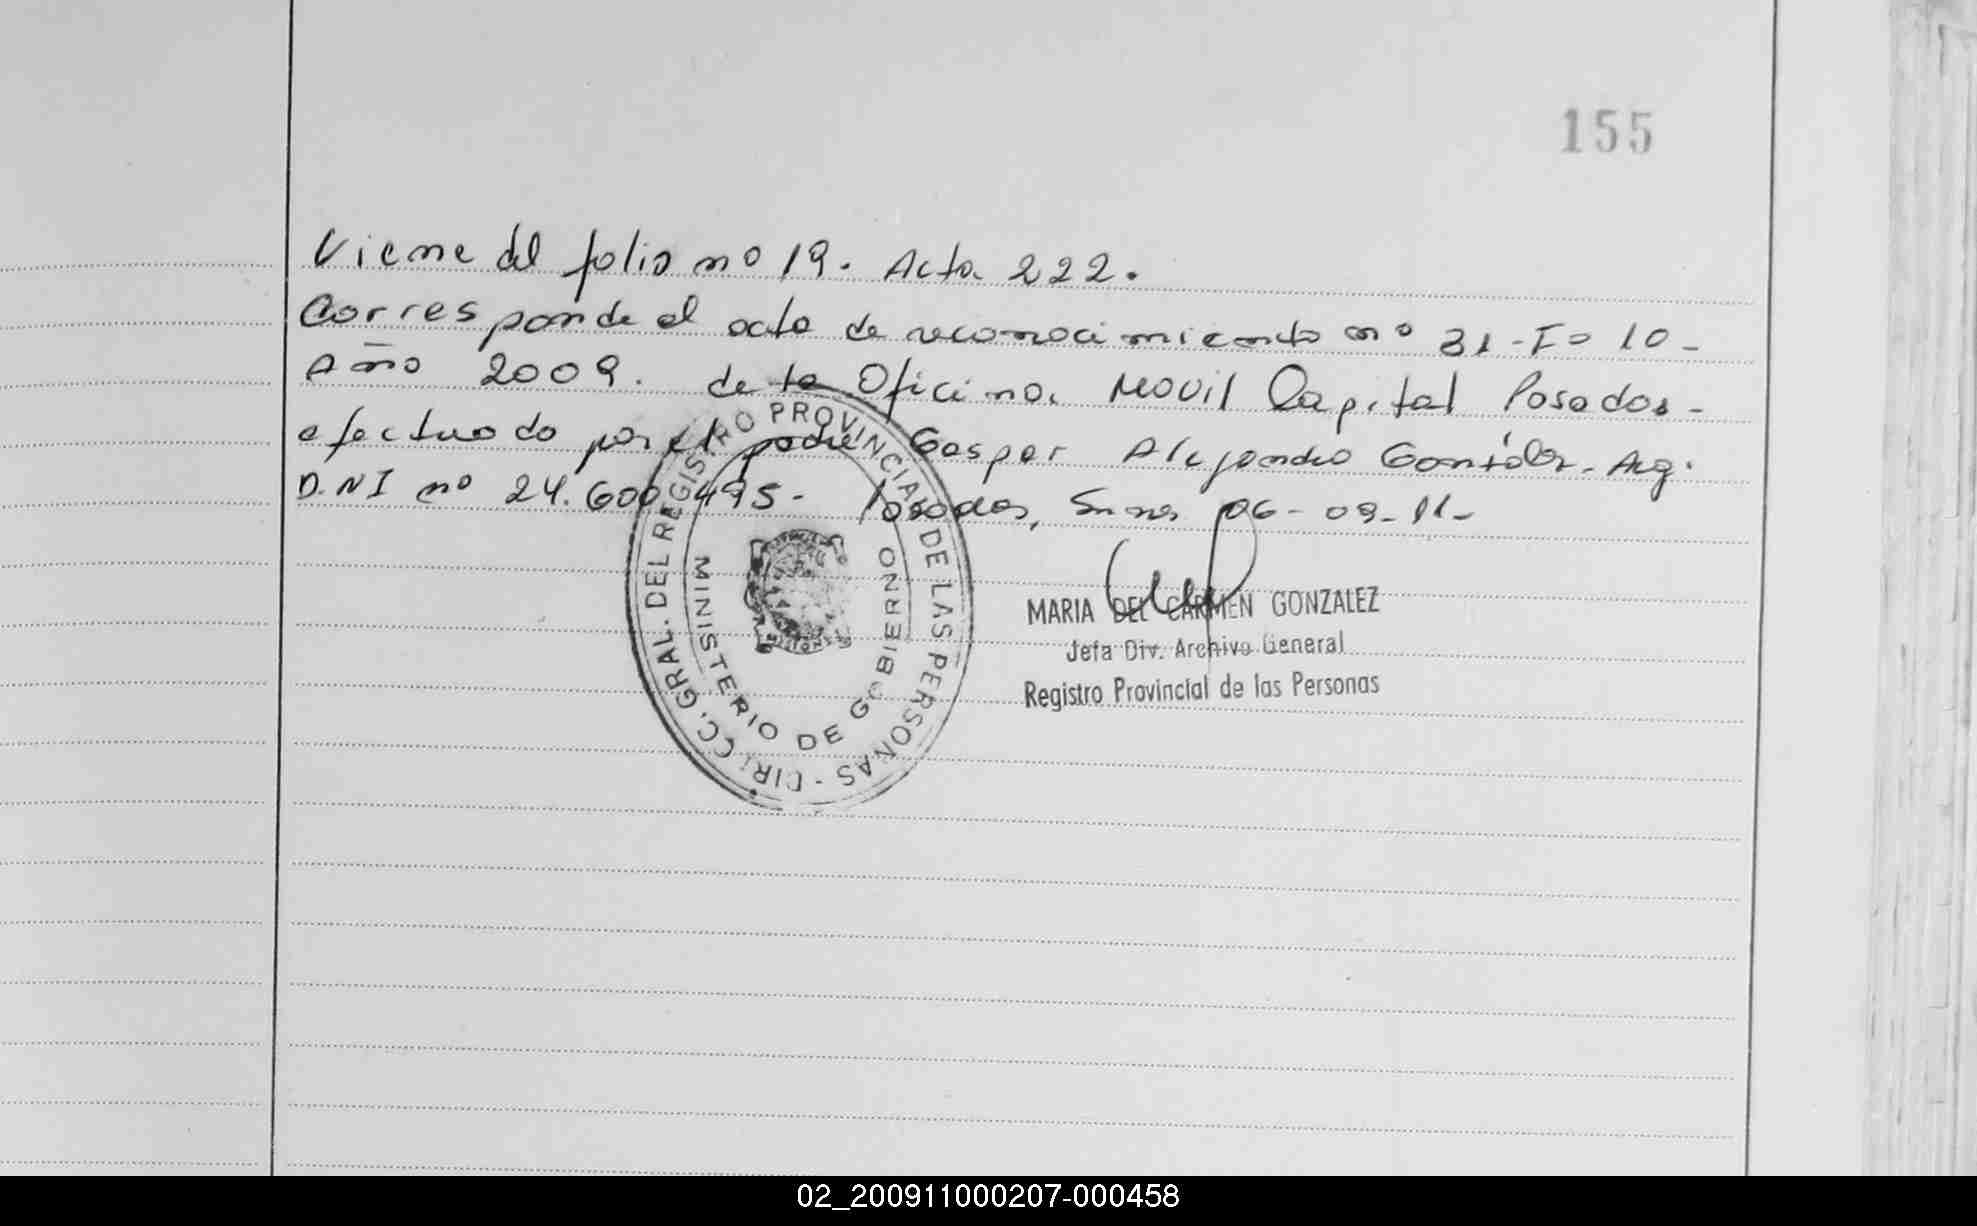 155
Viene del folio nº 19. Acta 222.
Corresponde al acta de reconocimiento nº 31-Fº 10-
Año 2009. de la Oficina Movil Capital Posadas-
efectuado por el padre Gaspar Alejandro González. Arg.
D.NI nº 24.600.495- Posadas, 06-09-11-
REGISTRO PROVINCIAL DE LAS PERSONAS - CIR. CC. GRAL. DEL
MINISTERIO DE GOBIERNO
MARIA DEL CARMEN GONZALEZ
Jefa Div. Archivo General
Registro Provincial de las Personas
02_200911000207-000458